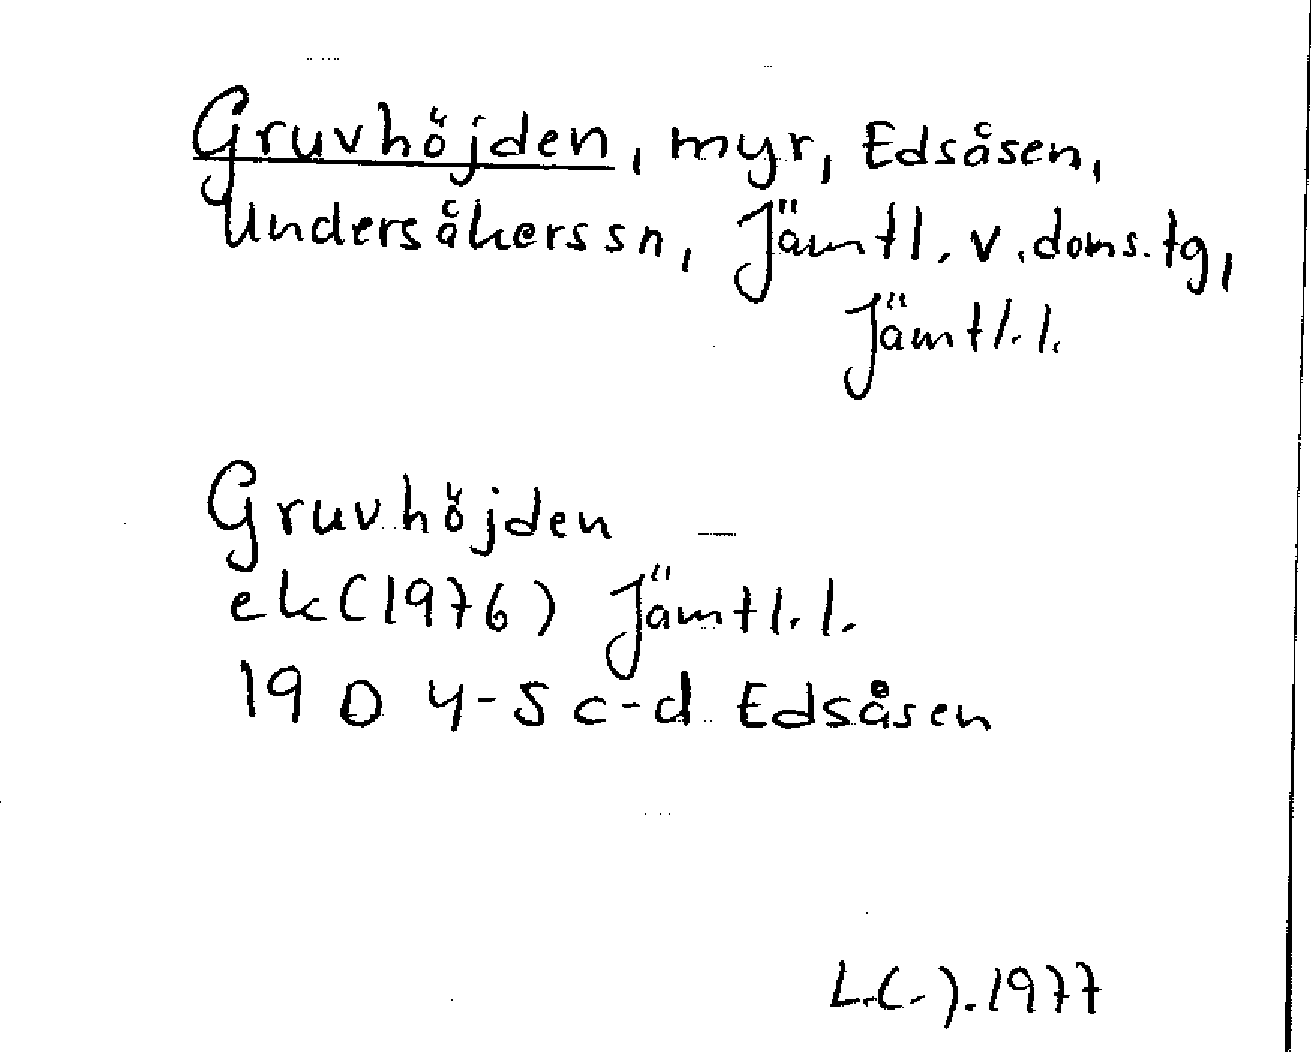 Gruvhöjden, myr, Edsåsen,
Undersåkers sn, Jämtl. v. doms. tg,
Jämtl. l.
Gruvhöjden —
ek (1976) Jämtl. l.
19 D 4-5 c-d Edsåsen
1977